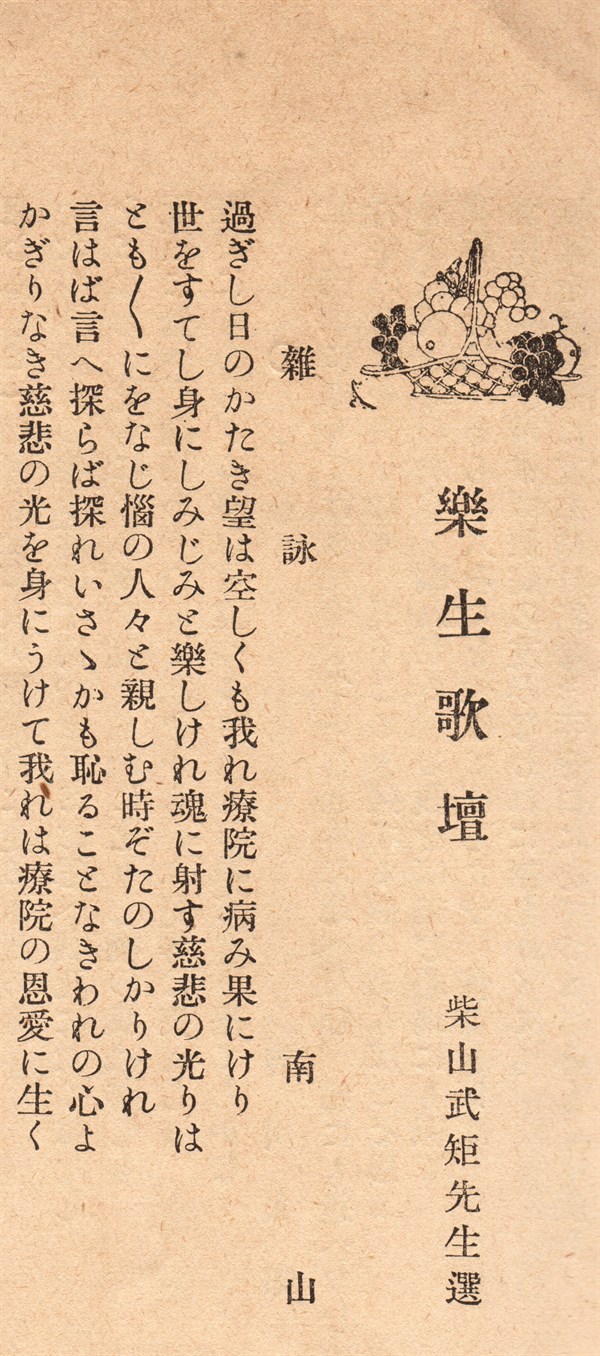 樂生歌壇
柴山武矩先生選
雜詠
南山
過ぎし日のかたき望は空しくも我れ療院に病み果にけり
世をすてし身にしみじみと樂しけれ魂に射す慈悲の光りは
とも〳〵にをなじ惱の人々と親しむ時ぞたのしかりけれ
言はば言へ探らば探れいさゝかも恥ることなきわれの心よ
かぎりなき慈悲の光を身にうけて我れは療院の恩愛に生く